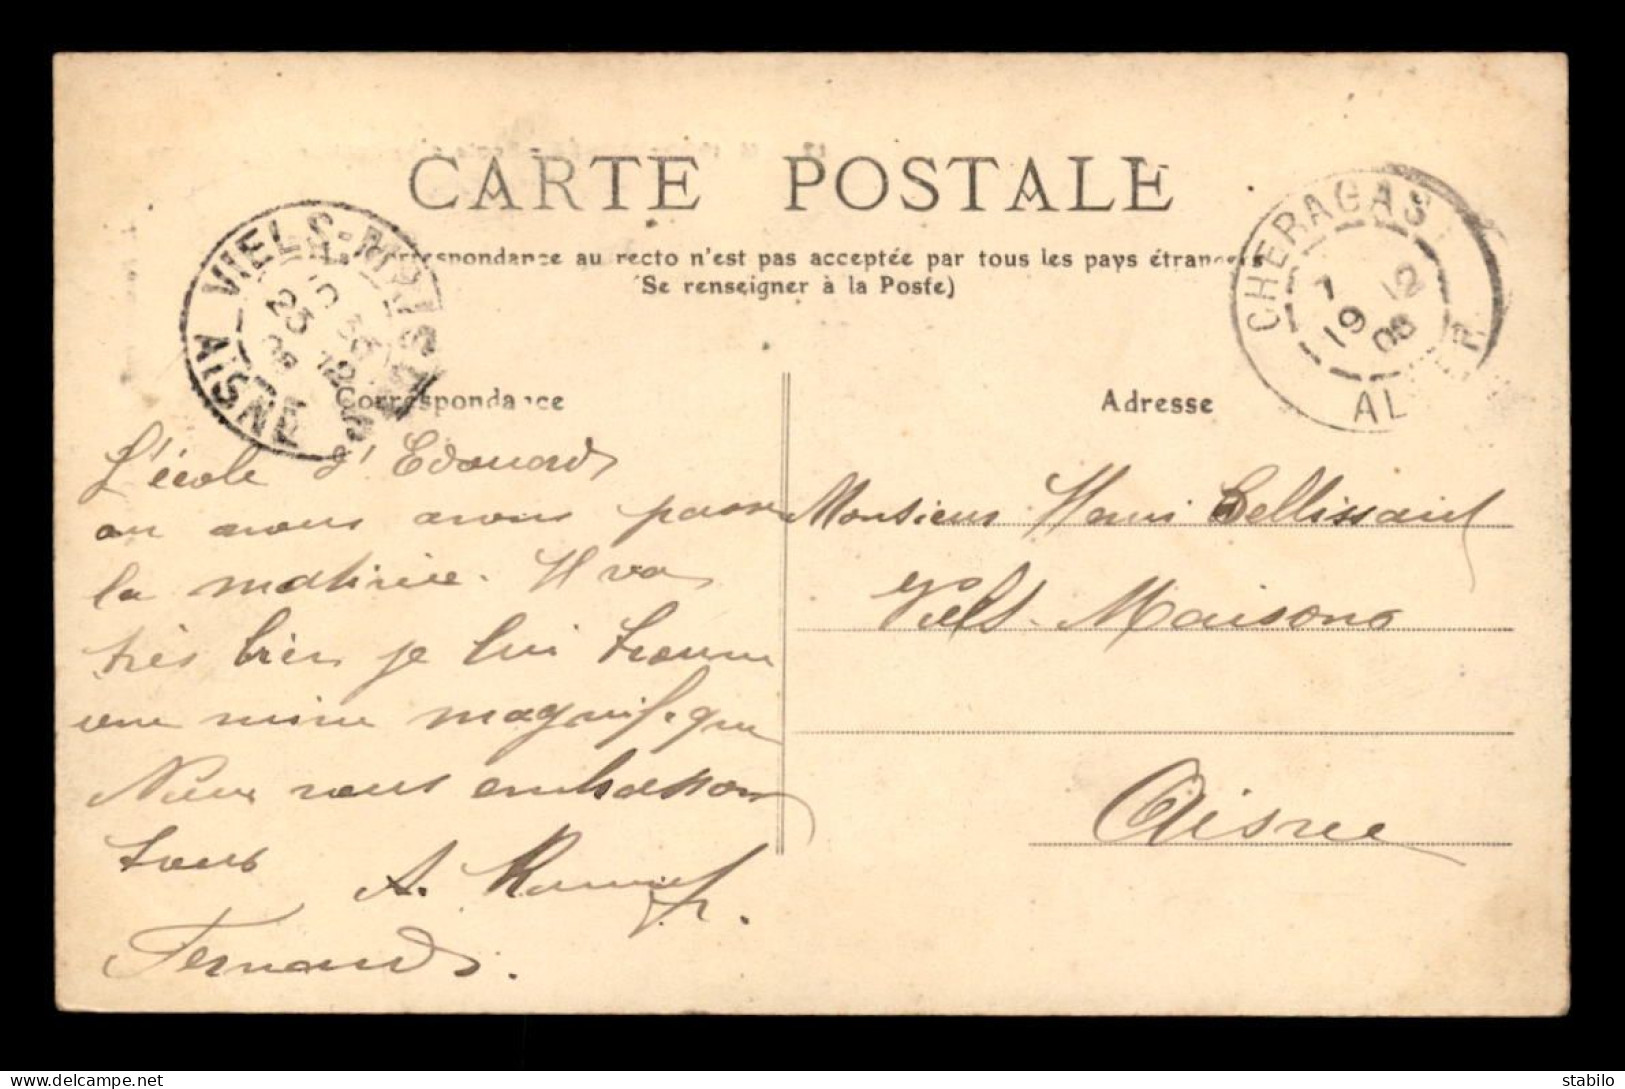 CARTE POSTALE
La Correspondance au recto n'est pas acceptée par tous les pays étrangers
(Se renseigner à la Poste)
VIELS-MAISONS
10 35
23 12
08
AISNE
CHERAGAS
7
19 12
08
ALGER
Correspondance
L'école d'Edouard
ou nous avons passé
la matinée. Il va
très bien je lui trouve
une mine magnifique
Nous vous embrassons
tous
A.
Fernand.
Adresse
Monsieur Henri Bellissant
Viels-Maisons
Aisne
delcampe.net
stabilo